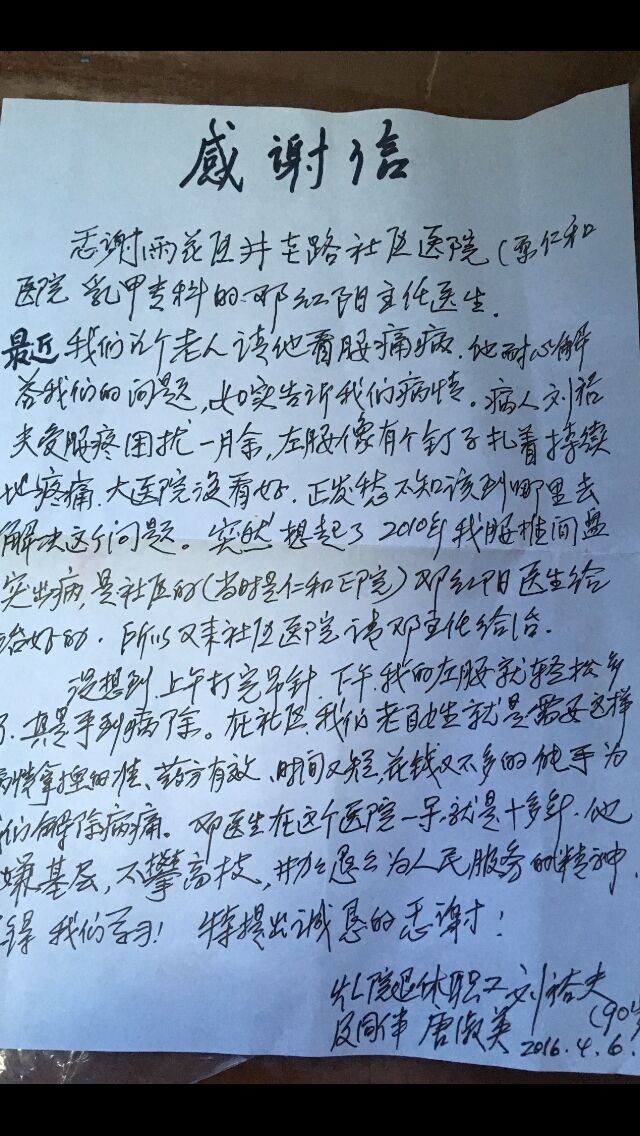 感谢信
感谢雨花区井屯路社区医院(原仁和
医院乳甲专科的邓红阳主任医生.
最近我们几个老人请他看腰痛病.他耐心解
答我们的问题,如实告诉我们病情。病人刘裕
夫受腰疼困扰一月余,左腰像有个钉子扎着持续
地疼痛.大医院没看好.正发愁不知该到哪里去
解决这个问题。突然想起了2010年我腰椎间盘
突出病,是社区的(当时是仁和医院)邓红阳医生给
治好的.所以又来社区医院请邓主任给治.
没想到上午打完吊针.下午.我的左腰就轻松多
了.真是手到病除。在社区我们老百姓就是需要这样
病情拿捏的准、药方有效、时间又短,花钱又不多的能手为
们解除病痛。邓医生在这个医院一呆就是十多年.他
嫌基层,不攀高枝,为人民服务的精神.
得我们学习!特提出诚恳的感谢!
院退休职工刘裕夫
及同伴 唐淑英 (90岁)
2016.4.6.